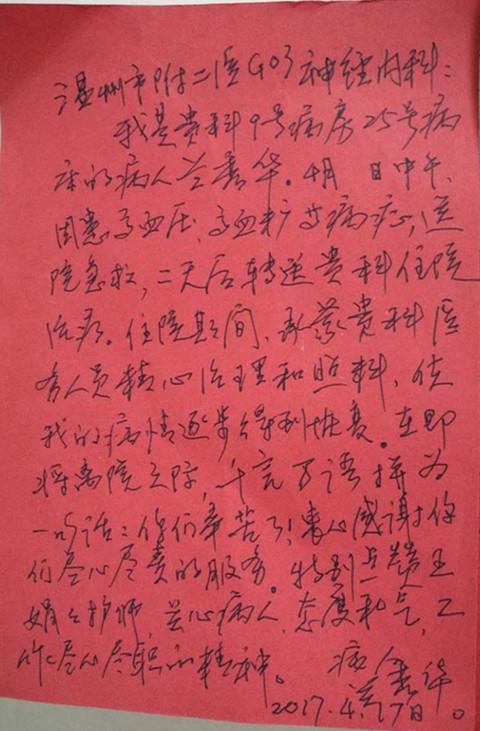 温州市附二医G03神经内科:
我是贵科9号病房25号病
床的病人兰秀华。4月 日中午,
因患高血压、高血糖等病症,送
院急救,二天后转送贵科住院
治疗。住院期间,承蒙贵科医
务人员精心治理和照料,使
我的病情逐步得到恢复。在即
将离院之际,千言万语拼为
一句话:你们辛苦了!衷心感谢你
们尽心尽责的服务。特别点赞王
娟娟护师 关心病人,态度和气,工
作尽心尽职的精神。 病人 秀华。
2017.4.17日